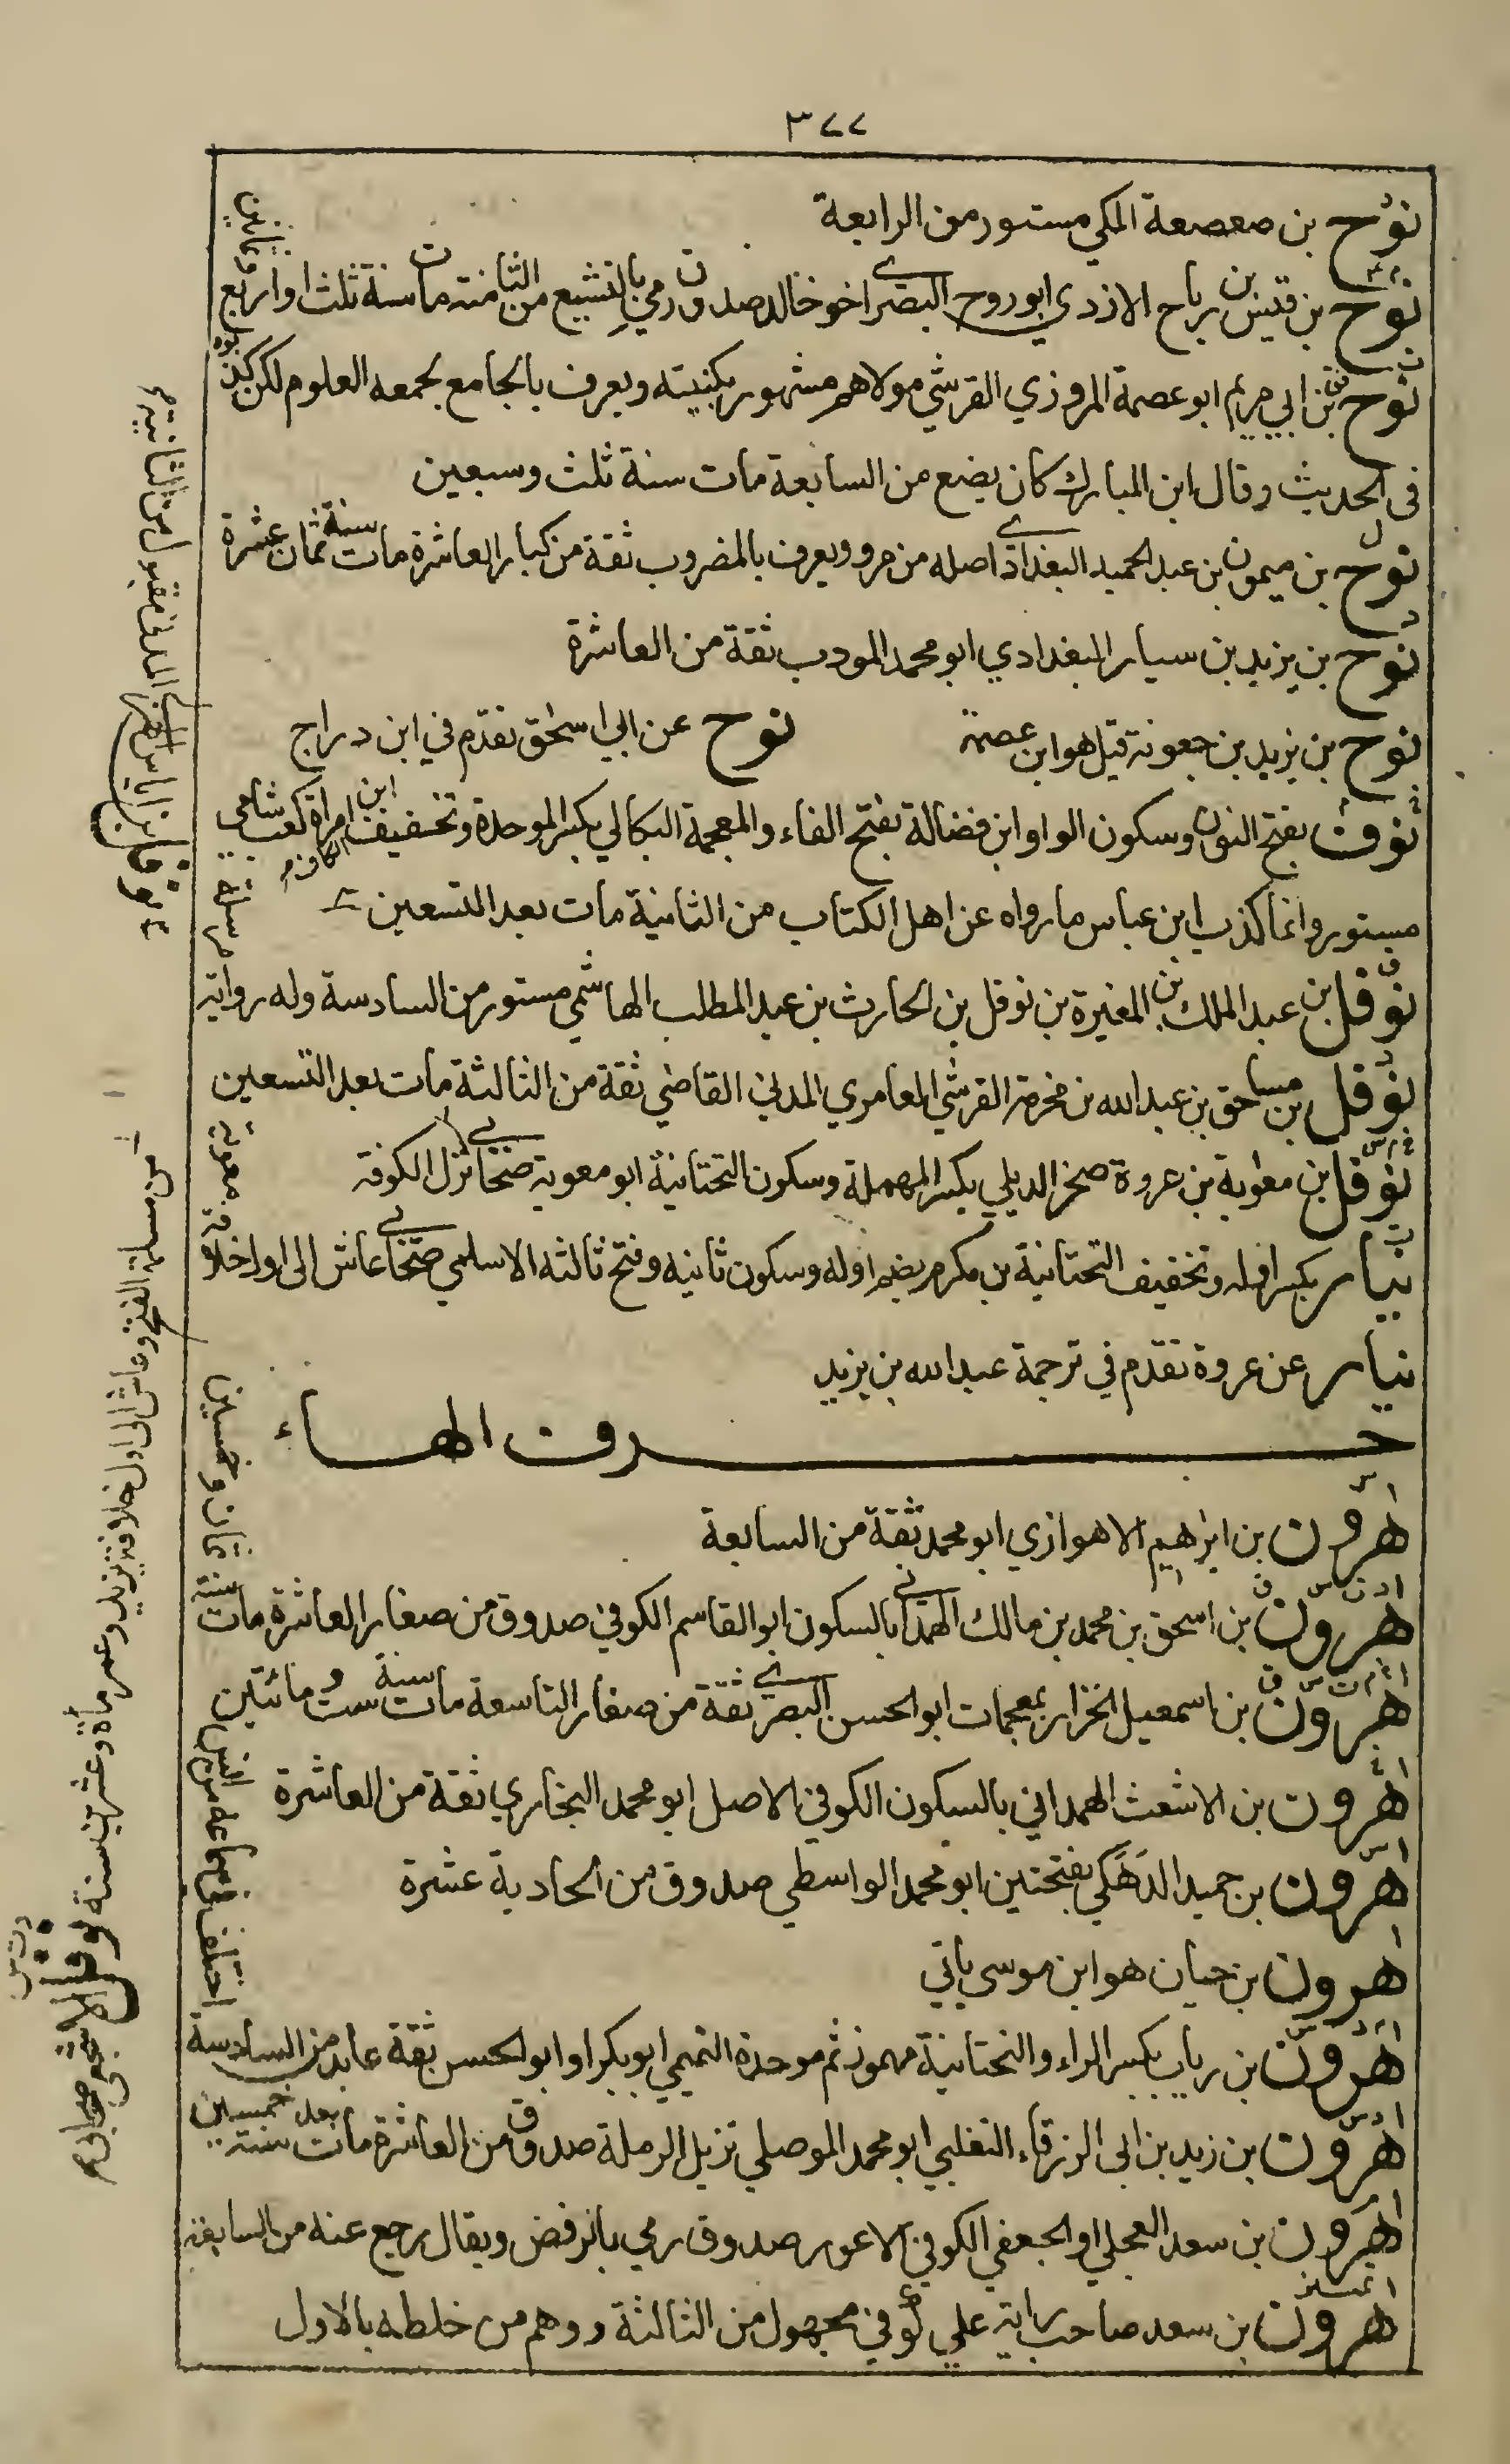 ٣٧٧
نوح بن صعصعة المكي مستور من الرابعة
نوح بن قيس بن رباح الازدي ابو روح البصري اخو خالد صدوق رمي بالتشيع من الثامنة مات سنة ثلث او اربع وثمانين
نوح بن ابي مريم ابو عصمة المروزي القرشي مولاهم مشهور بكنيته ويعرف بالجامع لجمعه العلوم لكن كذبوه
في الحديث وقال ابن المبارك كان يضع من السابعة مات سنة ثلث وسبعين
نوح بن ميمون بن عبد الحميد البغدادي اصله من مرو ويعرف بالمضروب ثقة من كبار العاشرة مات سنة ثمان عشرة
نوح بن يزيد بن سيار البغدادي ابو محمد المودب ثقة من العاشرة
نوح بن يزيد بن جعونة قيل هو ابن عصمة نوح عن ابي اسحق تقدم في ابن دراج
نوف بفتح النون وسكون الواو ابن فضالة بفتح الفاء والمعجمة البكالي بكسر الموحدة وتخفيف الكاف ابن امراة كعب شامي
مستور وانما كذب ابن عباس ما رواه عن اهل الكتاب من الثانية مات بعد التسعين
نوفل بن عبد الملك بن المغيرة بن نوفل بن الحارث بن عبد المطلب الهاشمي مستور من السادسة وله رواية مرسلة
نوفل بن مساحق بن عبد الله بن مخرمة القرشي العامري المدني القاضي ثقة من الثالثة مات بعد التسعين
نوفل بن معوية بن عروة صخر الديلي بكسر المهملة وسكون التحتانية ابو معوية صحابي نزل الكوفة
نيار بكسر اوله وتخفيف التحتانية بن مكرم بضم اوله وسكون ثانيه وفتح ثالثه الاسلمي صحابي عاش الى اول خلافة معوية
نيار عن عروة تقدم في ترجمة عبد الله بن يزيد
حرف الهاء
هرون بن ابرهيم الاهوازي ابو محمد ثقة من السابعة
هرون بن اسحق بن محمد بن مالك الهمداني بالسكون ابو القاسم الكوفي صدوق من صغار العاشرة مات سنة ثمان وخمسين
هرون بن اسمعيل الخزاز بمعجمات ابو الحسن البصري ثقة من صغار التاسعة مات سنة ست ومائتين
هرون بن الاشعث الهمداني بالسكون الكوفي الاصل ابو محمد البخاري ثقة من العاشرة
هرون بن حميد الدهكي بفتحتين ابو محمد الواسطي صدوق من الحادية عشرة
هرون بن حيان هو ابن موسى ياتي
هرون بن رياب بكسر الراء والتحتانية مهموز ثم موحدة التميمي ابو بكر او ابو الحسن ثقة عابد من السادسة اختلف في سماعه من انس
هرون بن زيد بن ابي الزرقاء التغلبي ابو محمد الموصلي نزيل الرملة صدوق من العاشرة مات بعد سنة خمسين
هرون بن سعد العجلي او الجعفي الكوفي الاعور صدوق رمي بالرفض ويقال رجع عنه من السابعة
هرون بن سعد صاحب راية علي كوفي مجهول من الثالثة ووهم من خلطه بالاول
نوفل بن اياس الهذلي المدني مقبول من الثانية
من مسلمة الفتح وعاش الى اول خلافة يزيد وعمر مأة وعشرين سنة
نوفل الاشجعي صحابي